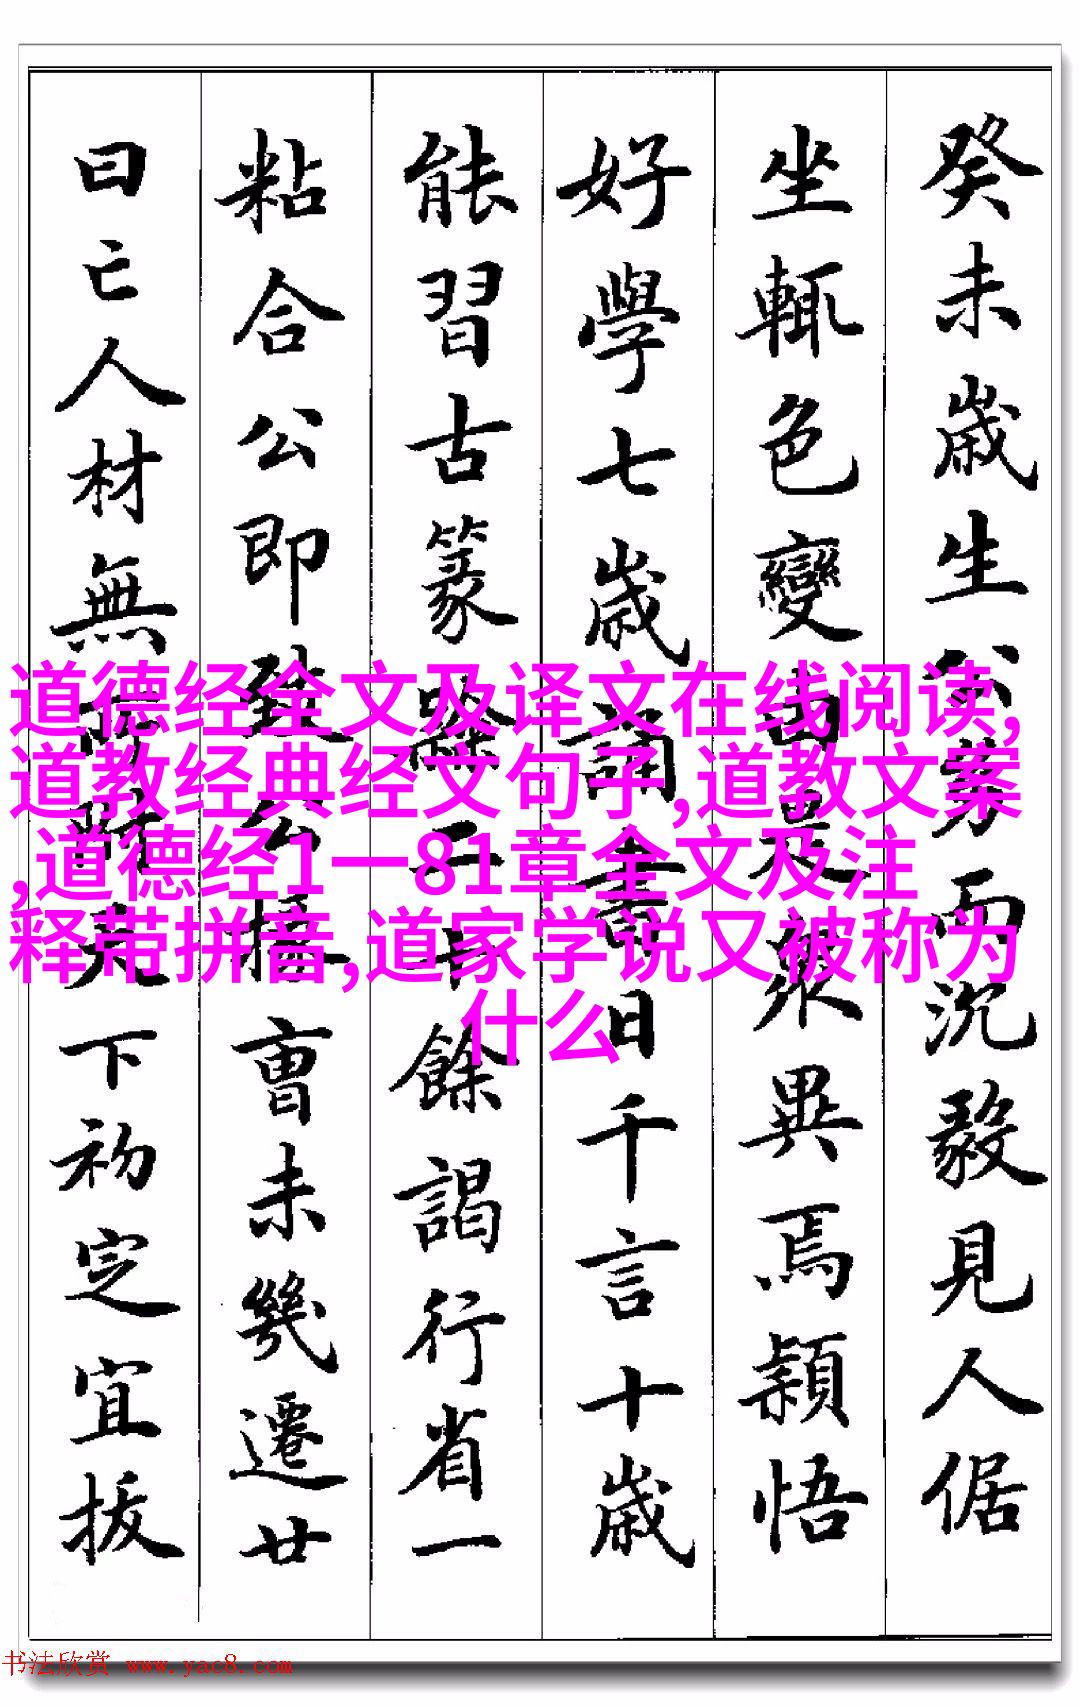 癸未歲生公而沉毅見人倨
坐輒色變由是眾異焉穎悟
好學七歲誦書日千言十歲
能習古篆二十餘謁行省一
粘合公即公掾曹未幾遷廿
曰亡人材無下初定宜拔
道德经全文及译文在线阅读,
道教经典经文句子,道教文案
,道德经1一81章全文及注
释带拼音,道家学说又被称为
什么
书法欣赏 www.yac8.com